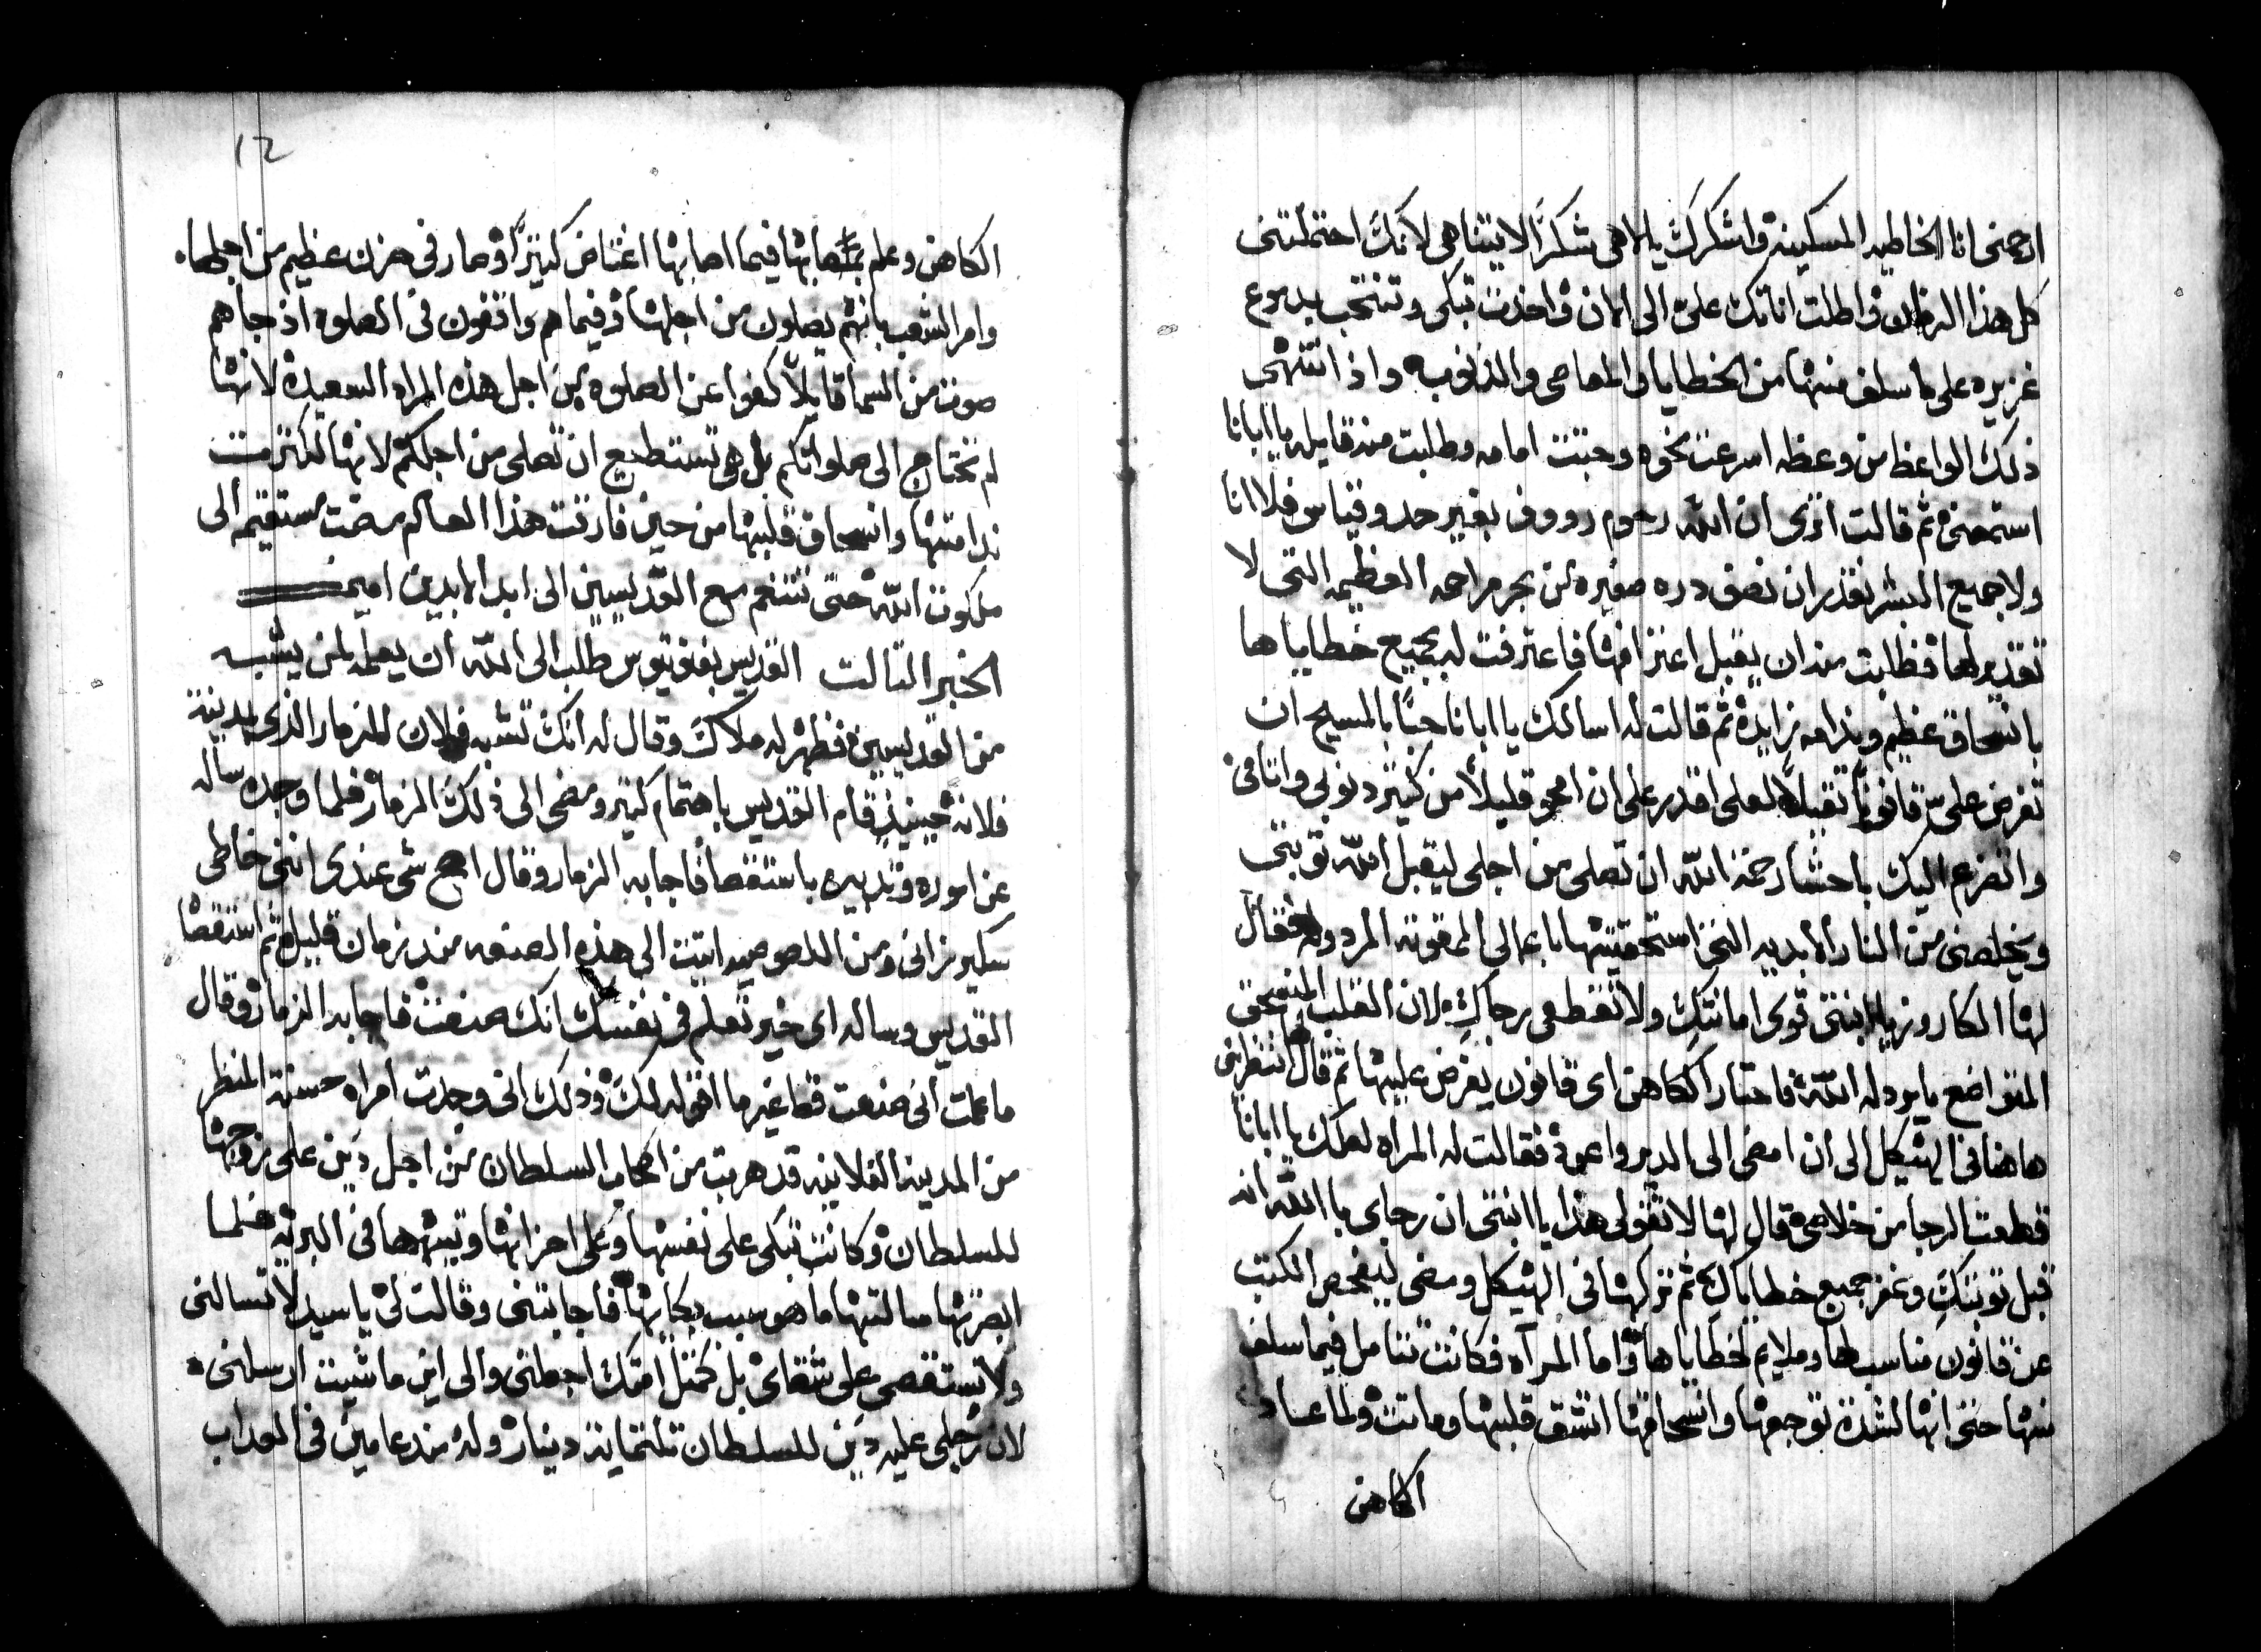 ارحمنى انا الخاطيه المسكينه واشكرك يا الاهى شكرًا لا يتناهى لانك احتملتنى
كل هذا الزمان واطلت اناتك علىّ الى الان واخذت تبكى وتنتحب بدموع
غزيره على ما سلف منها من الخطايا والمعاصى والذنوب واذ انتهى
ذلك الواعظ من وعظه اسرعت نحوه وجثت امامه وطلبت منه قايله يا ابانا
استمعنى ثم قالت اترى ان الله رحوم رووف بغير حد وقياس فلا انا
ولا جميع البشر نقدر ان نصف دره صغيره من بحر مراحمه العظيمه التى لا
تقدير لها فطلبت منه ان يقبل اعترافها فاعترفت له بجميع خطاياها
بانسحاق عظيم وندامه زايده ثم قالت له اسالك يا ابانا حبًا بالمسيح ان
تفرض على قانونًا تقيلاً لعلى اقدر على ان امحو قليلاً من كثير دنوبى وانا من
واتضرع اليك باحشا رحمة الله ان تصلى من اجلى ليقبل الله توبتى
ويخلصنى من النار الابديه التى استحقيتها باعمالى الممقوته المردوله فقال
لها الكاروز يا ابنتى قوى امانتكِ ولا تقطعى رجاكِ لان القلب المنسحق
المتواضع ما يردله الله فاحتار الكاهن اى قانون يفرض عليها ثم قال لها انتظرينى
هاهنا فى الهيكل الى ان امضى الى الدير واعود فقالت له المراه لعلك يا ابانا
قطعت الرجا من خلاصى قال لها لا تقولى هذا يا ابنتى ان رجاى با الله انه
قبل توبتكِ وغفر جميع خطاياكِ ثم تركها فى الهيكل ومضى ليفحص الكتب
عن قانون مناسب لها وملايم لخطاياها واما المرآه فكانت تتامل فيما سلف
منها حتى انها لشدة توجعها وانسحاقها انشق قلبها وماتت ولما عاد
الكاهن
12
الكاهن وعلم بمصابها فيما اصابها اغتاض كثيرًا وصار فى حزن عظيم من اجلها
وامر الشعب بانهم يصلون من اجلها وفيما هم واقفون فى الصلوه اذ جاهم
صوت من السما قايلاً كفوا عن الصلوه من اجل هذه المراه السعيده لانها
لم تحتاج الى صلواتكم بل هى تستطيع ان تصلى من اجلكم لانها لكثرت
ندامتها وانسحاق قلبها من حين فارقت هذا العالم مضت مستقيمه الى
ملكوت الله حتى تتنعم مع القديسين الى ابد الابدين امين
الخبر الثالث القديس بفنوتيوس طلب الى الله ان يعلمه لمن يشبه
من القديسين فظهر له ملاك وقال له انك تشبه فلان المزمار الذى بمدينة
فلانه حينيذٍ قام القديس باهتمام كثير ومضى الى ذلك المزمار فلما وجده ساله
عن اموره وتدبيره باستقصا فاجابه المزمار وقال اصح شى عندى اننى خاطى
سكير زانى ومن اللصوصيه اتيت الى هذه الصنعه منذ زمان قليل ثم استقصا
القديس وساله اى خير تعلم فى نفسك انك صنعت فاجابه المزمار وقال
ما علمت انى صنعت قط غير ما اقوله لك وذلك انى وجدت امراه حسنة المنظر
من المدينه الفلانيه قد هربت من اصحاب السلطان من اجل دين على زوجها
للسلطان وكانت تبكى على نفسها وعلى احزانها وتيهها فى البريه فلما
ابصرتها سالتها ما هو سبب بكايها فاجابتنى وقالت لى يا سيد لا تسالنى
ولا تستقصى على شقاى بل كمثل امتك اجعلنى والى اين ما شيت ارسلنى
لان رجلى عليه دين للسلطان تلتماية دينار وله منذ عامين فى العداب